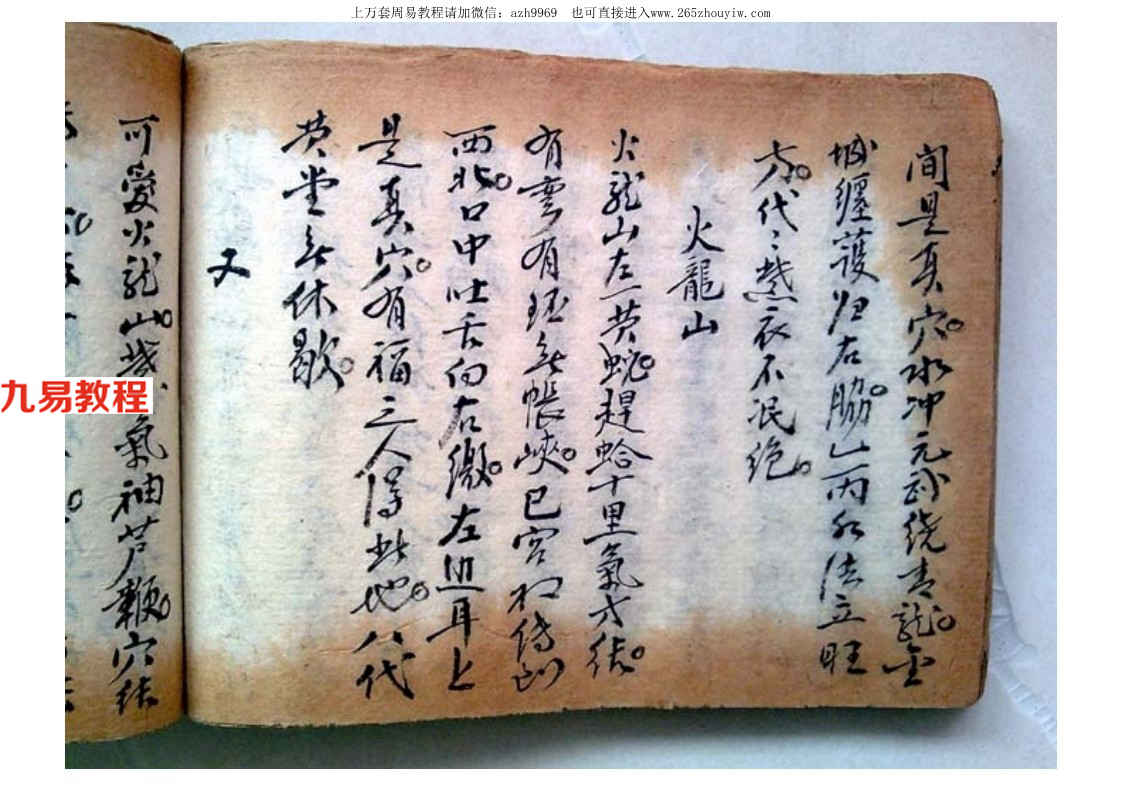 上万套周易教程请加微信：azh9969　也可直接进入www.265zhouyiw.com
间是真穴。水冲元武绕青龙。金
城缠護归右脇。丙 法立旺
方。代〻紫衣不泯绝。
火龍山
火龙山左一黄蛇。趕蛤十里氣方结。
有弯有 无帐峽。已
西北。口中吐舌向右缴。左边耳上
是真穴。有福之人得此地。八代
黄堂无休歇。
又
可愛火龙山。 氣神芦鞭。穴结
九易教程